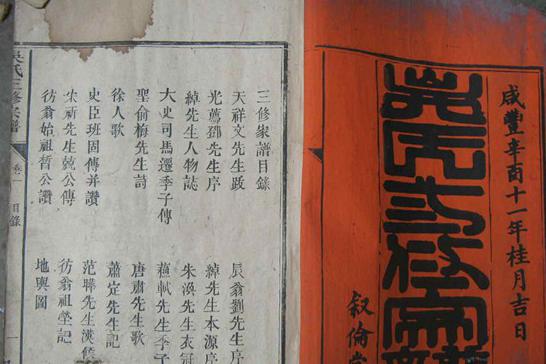 咸豐辛酉十一年桂月吉日
吳氏三修宗譜
叙倫
三修家譜目錄
天祥文先生跋 辰翁劉先生序
光薦鄧先生序 綽先生本源序
綽先生人物誌 朱渙先生衣冠
大史司馬遷季子傳 蘓軾先生季子
聖俞梅先生詩 唐肅先生歌
徐人歌 蕭定先生記
史臣班固傳并讚 范曄先生漢
宋祈先生兢公傳 彷翁祖塋記
彷翁始祖哲公讚 地輿圖
吳氏三修宗譜 卷一 目錄